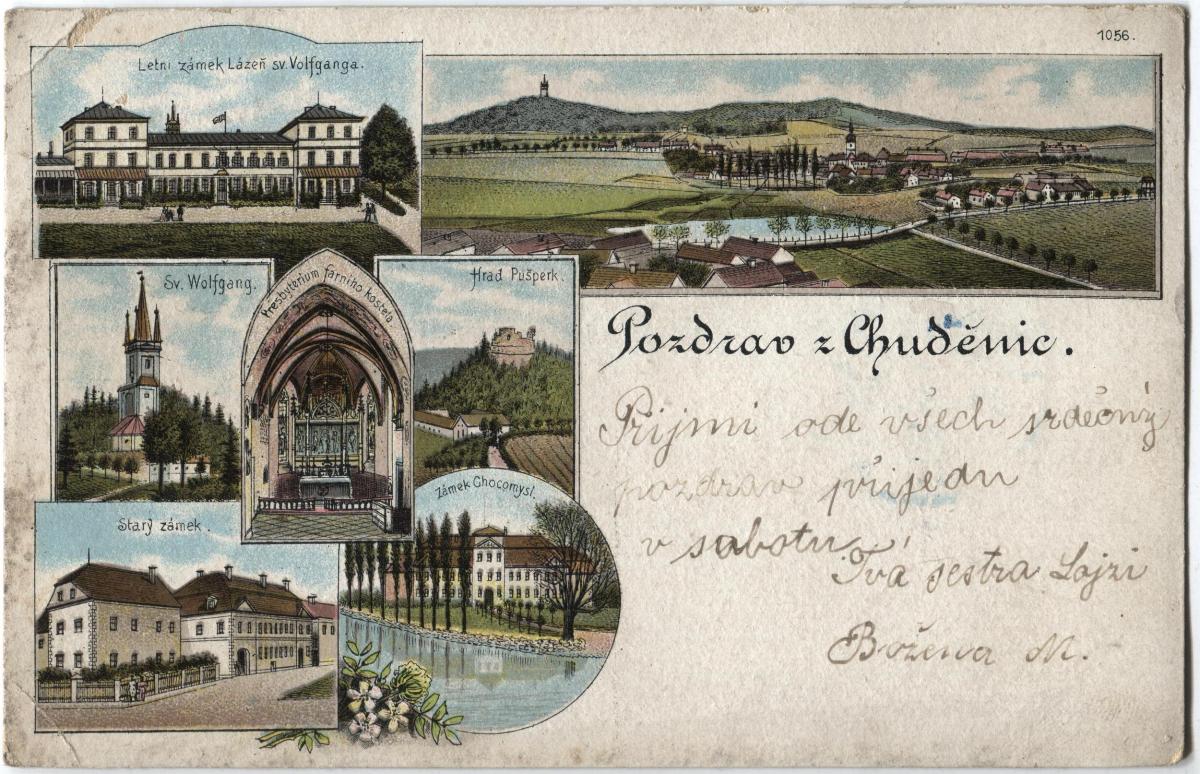 1056.
Letní zámek Lázeň sv. Volfganga.
Sv. Wolfgang.
Presbyterium farního kostela
Hrad Pušperk.
Starý zámek.
Zámek Chocomyšl.
Pozdrav z Chuděnic.
Přijmi ode všech srdečný
pozdrav přijedu
v sobotu
Tvá sestra Lojzi
Božena M.